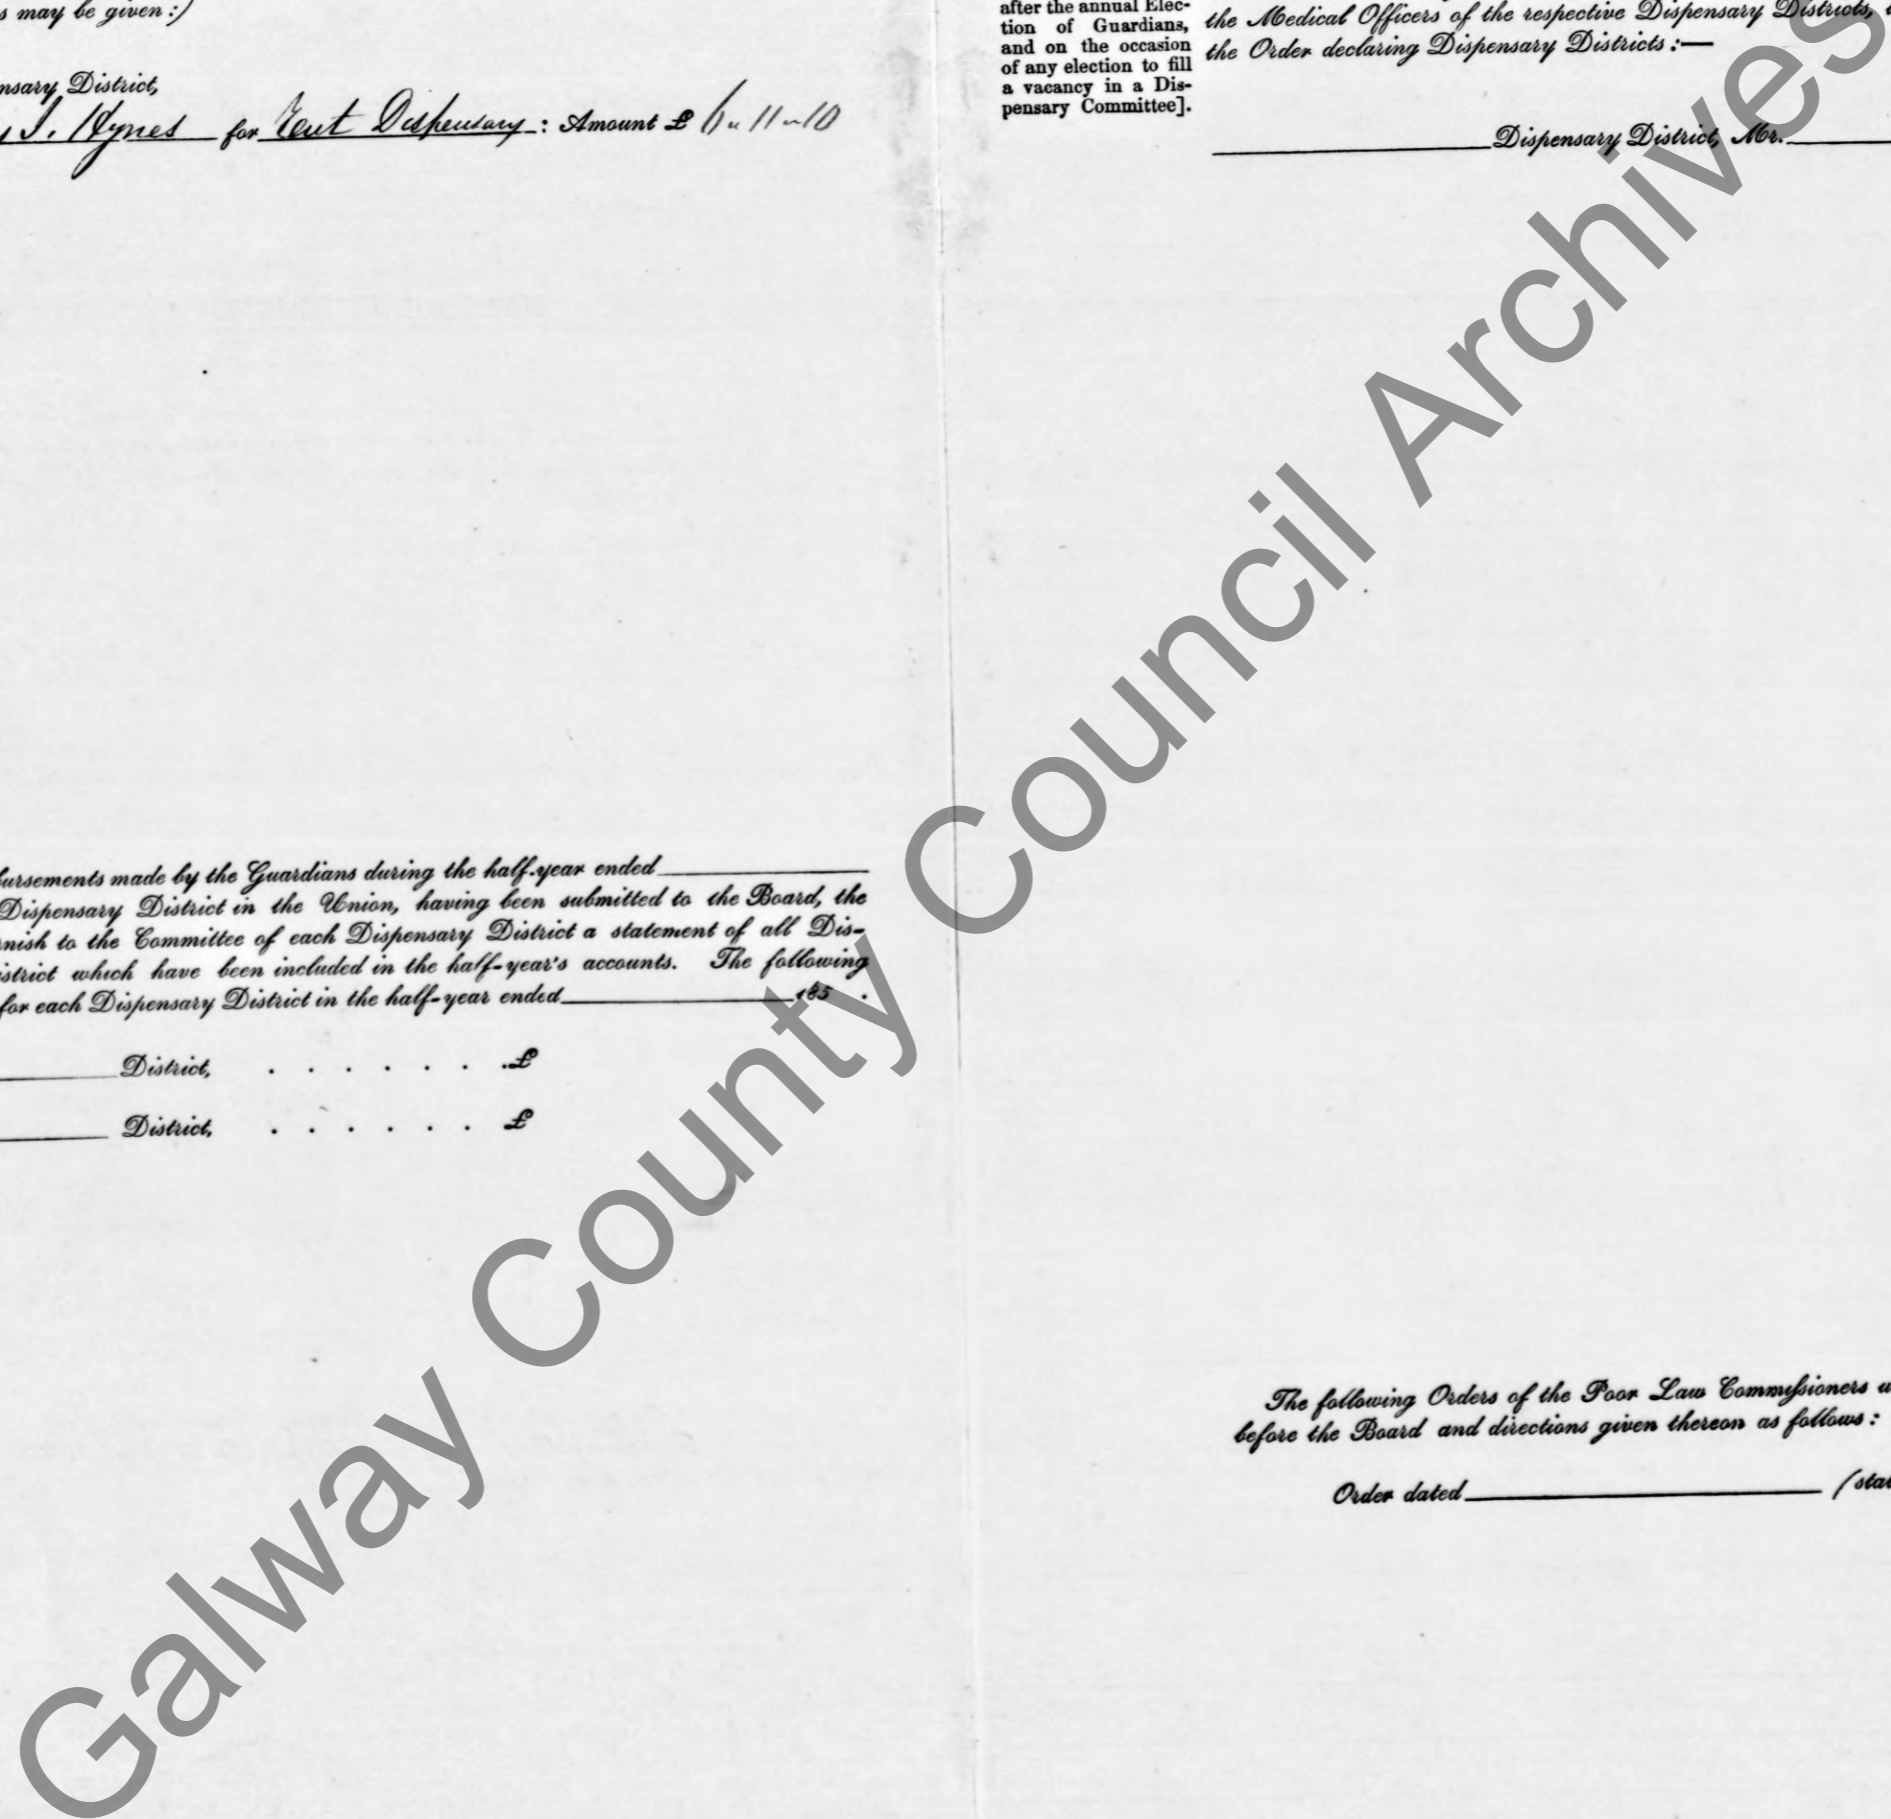 s may be given:)
nsary District,
J. Hynes for Rent Dispensary: Amount £ 6 11 10
ursements made by the Guardians during the half-year ended
Dispensary District in the Union, having been submitted to the Board, the
nish to the Committee of each Dispensary District a statement of all Dis-
istrict which have been included in the half-year's accounts. The following
for each Dispensary District in the half-year ended 185 .
District, . . . . . . . £
District, . . . . . . £
after the annual Elec-
tion of Guardians,
and on the occasion
of any election to fill
a vacancy in a Dis-
pensary Committee].
the Medical Officers of the respective Dispensary Districts,
the Order declaring Dispensary Districts:—
Dispensary District, Mr.
The following Orders of the Poor Law Commissioners
before the Board and directions given thereon as follows:
Order dated (stat
Galway County Council Archives